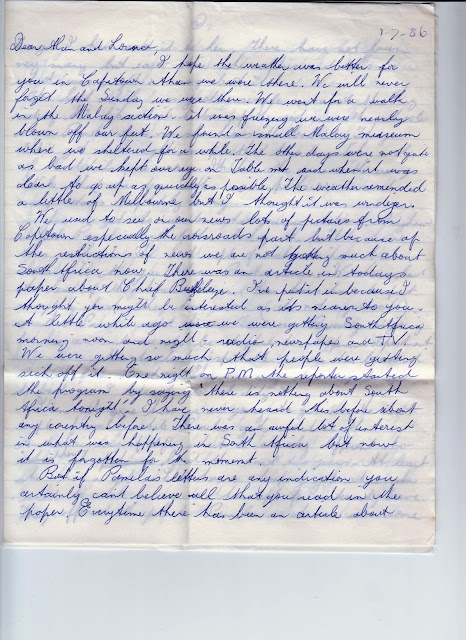 1-7-86
Dear Alan and Lorance
I hope the weather was better for
you in Capetown than we were there. We will never
forget the Sunday we were there. We went for a walk
in the Malay section. it was freezing we were nearly
blown off our feet. We found a small Malay museum
where we sheltered for a while. The other days were not quite
as bad we kept our eye on Table mt and when it was
clear to go up as quickly as possible. The weather reminded
a little of Melbourne but I thought it was windier.
We used to see on our news lots of pictures from
Capetown especially the crossroads part but because of
the restrictions of news we are not getting much about
South Africa now. There was an article in todays
paper about Chief Buthlieze. I've put it in because I
thought you might be interested as its nearer to you.
A little while ago we were getting South Africa
morning noon and night - radio, newspaper and T.V.
We were getting so much that people were getting
sick off it. One night on P.M. the reporter started
the program by saying "there is nothing about South
Africa tonight". I have never heard this before about
any country before. There was an awful lot of interest
in what was happening in South Africa but now
it is forgotten for the moment.
But if Pamela's letters are any indication you
certainly cant believe all that you read in the
paper. Everytime there has been an article about